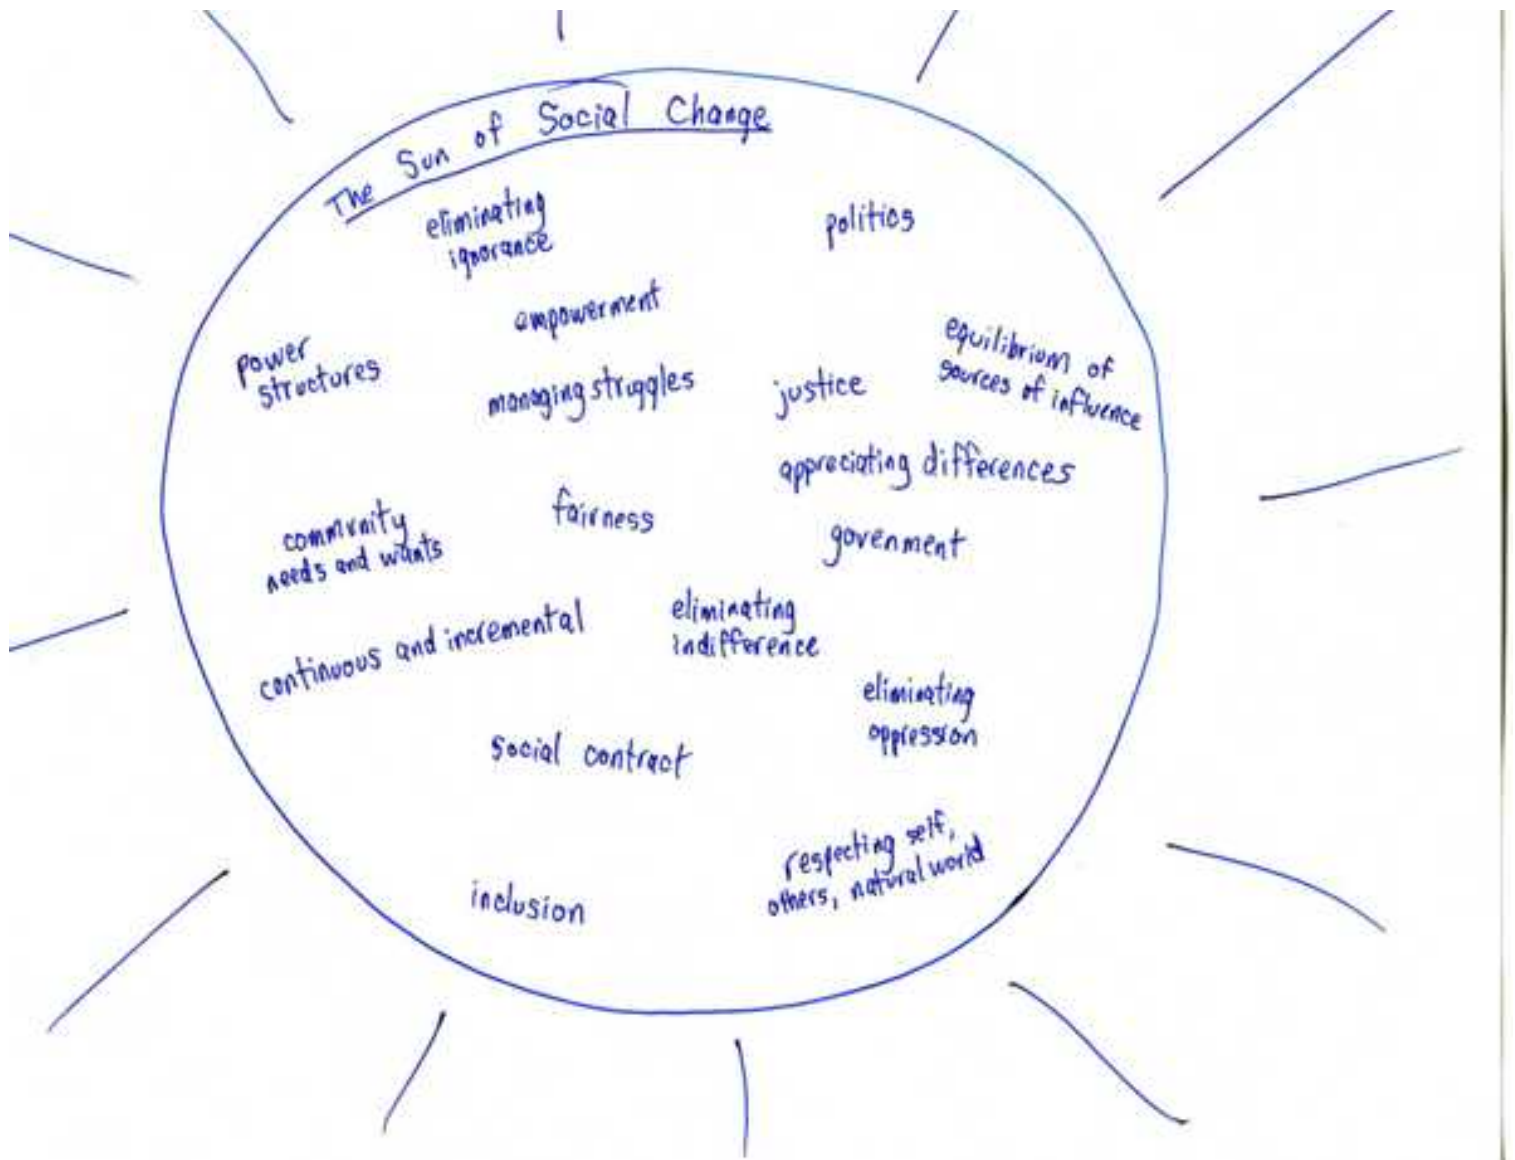 The Sun of Social Change
eliminating
ignorance
politics
empowerment
power
structures
equilibrium of
sources of influence
managing struggles
justice
appreciating differences
community
needs and wants
fairness
govenment
continuous and incremental
eliminating
indifference
eliminating
oppression
social contract
respecting self,
others, natural world
inclusion